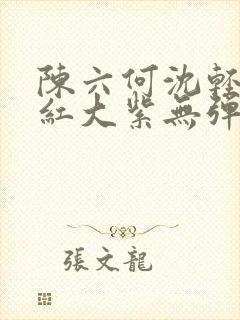 陳六何沈輕
紅大紫無彈
張文龍